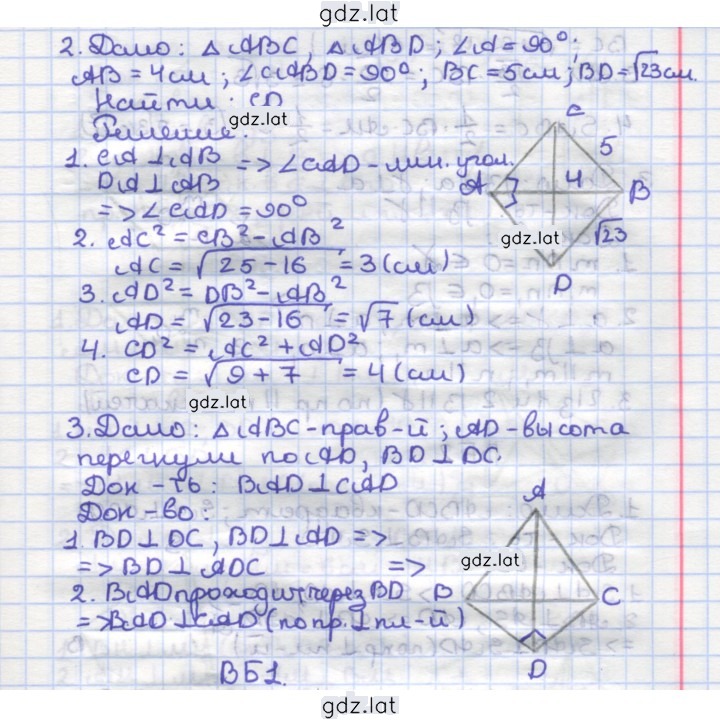 gdz.lat
2. Дано: △ABC, △ABD; ∠A=90°;
AB=4см; ∠ABD=90°; BC=5см; BD=√23см.
Найти: CD
gdz.lat
Решение:
1. CA⊥AB => ∠CAD - лин. угол.
DA⊥AB
=> ∠CAD=90°
2. AC²=CB²-AB²
AC=√25-16=3(см)
3. AD²=DB²-AB²
AD=√23-16=√7(см)
4. CD²=AC²+AD²
CD=√9+7=4(см)
C
5
A
4
B
gdz.lat
√23
D
gdz.lat
3. Дано: △ABC-прав-й; AD-высота
перегнули по AD, BD⊥DC.
Док-ть: BAD⊥CAD
Док-во:
1. BD⊥DC, BD⊥AD =>
=> BD⊥ADC =>
2. BAD проходит через BD
=> BAD⊥CAD (по пр.⊥пл-й)
A
gdz.lat
B
C
D
ВБ1.
gdz.lat